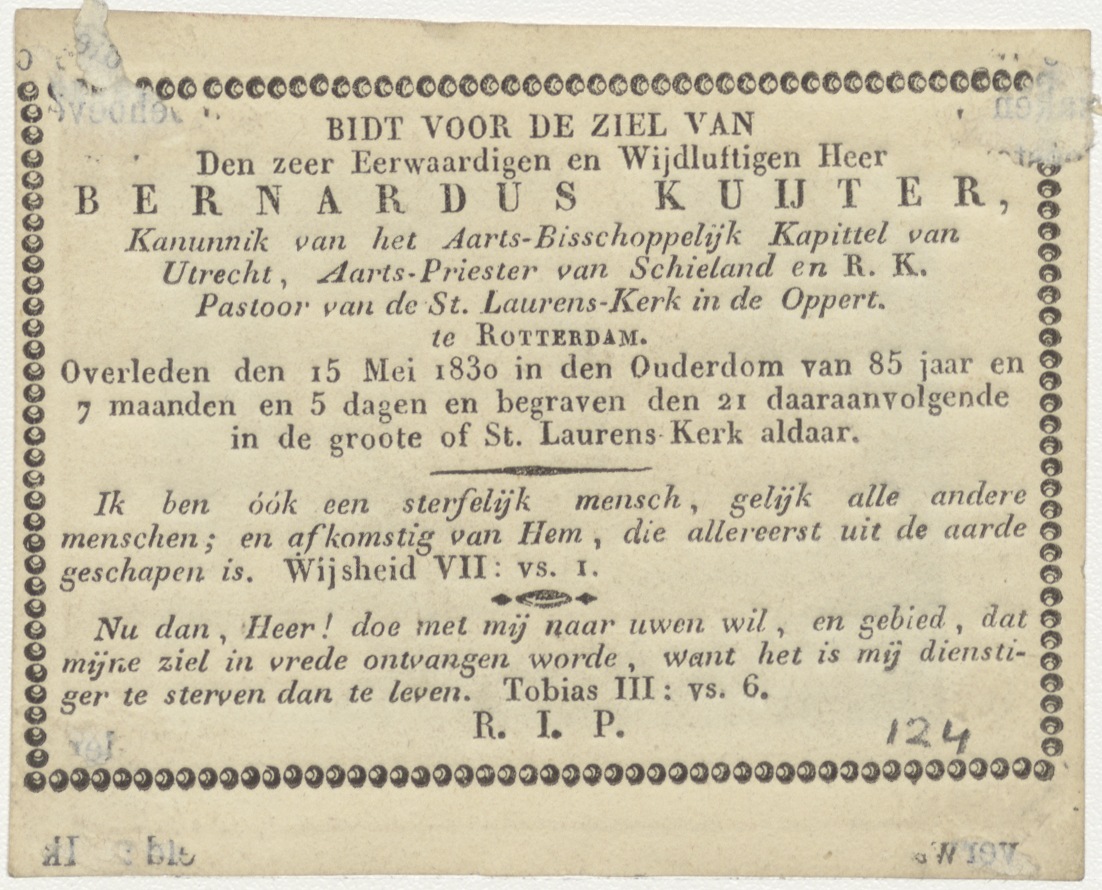 BIDT VOOR DE ZIEL VAN
Den zeer Eerwaardigen en Wijdluftigen Heer
BERNARDUS KUIJTER,
Kanunnik van het Aarts-Bisschoppelijk Kapittel van
Utrecht, Aarts-Priester van Schieland en R. K.
Pastoor van de St. Laurens-Kerk in de Oppert.
te ROTTERDAM.
Overleden den 15 Mei 1830 in den Ouderdom van 85 jaar en
7 maanden en 5 dagen en begraven den 21 daaraanvolgende
in de groote of St. Laurens-Kerk aldaar.
Ik ben óók een sterfelijk mensch, gelijk alle andere
menschen; en afkomstig van Hem, die allereerst uit de aarde
geschapen is. Wijsheid VII: vs. 1.
Nu dan, Heer! doe met mij naar uwen wil, en gebied, dat
mijne ziel in vrede ontvangen worde, want het is mij diensti-
ger te sterven dan te leven. Tobias III: vs. 6.
R. I. P.
124